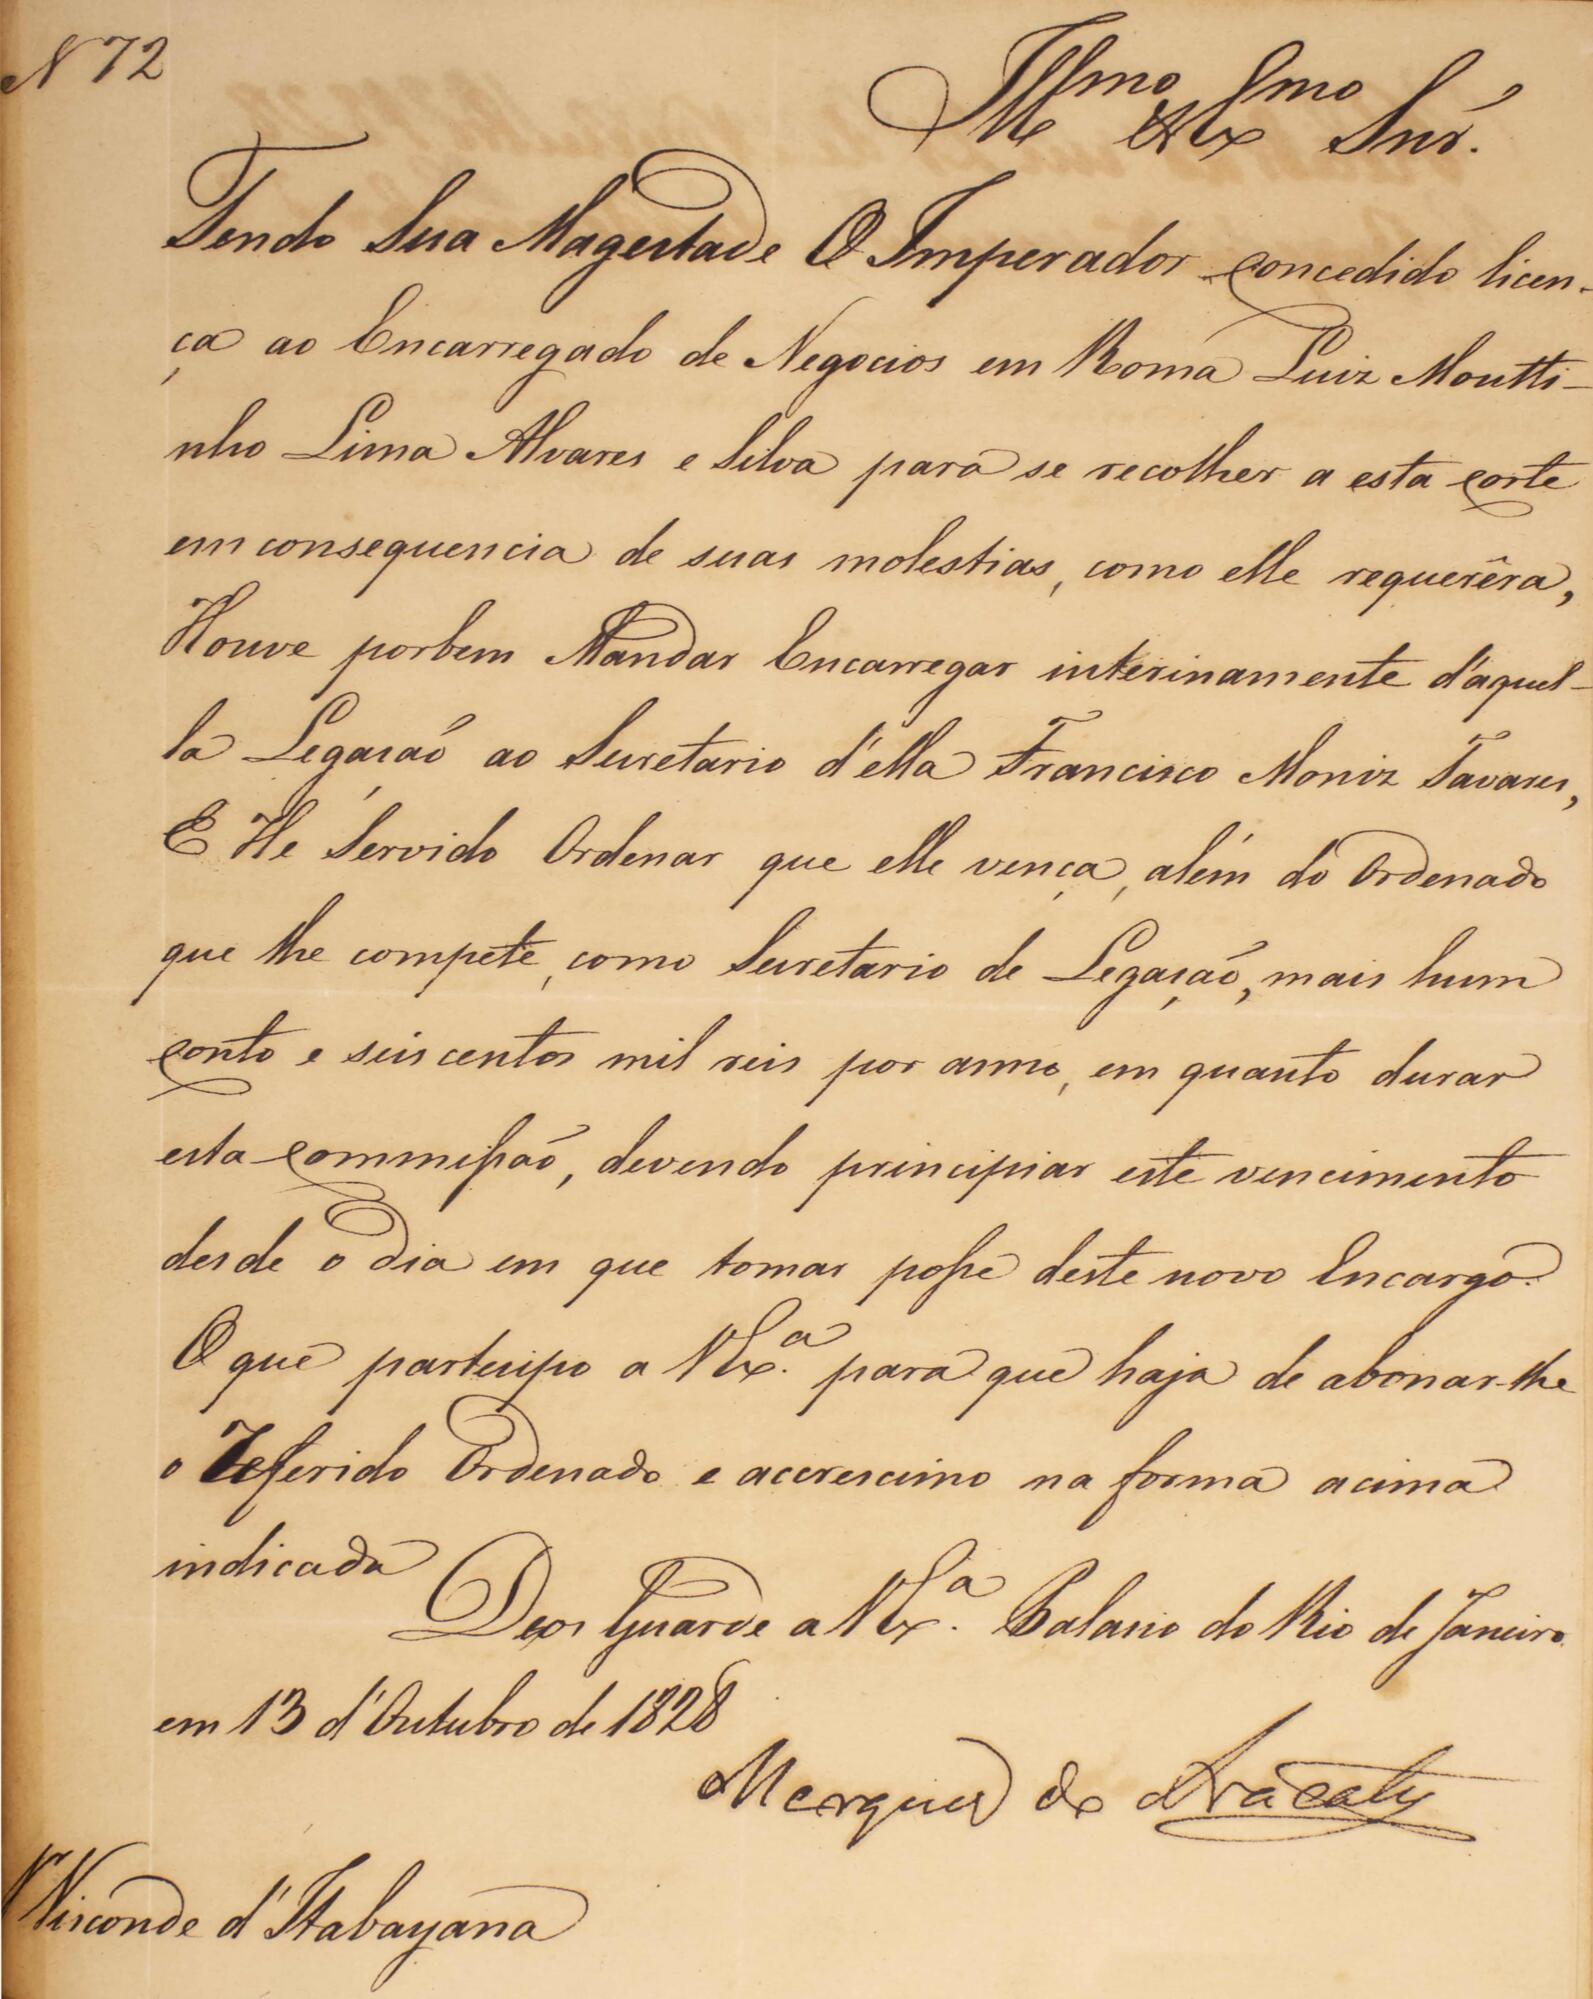 N 72
Illmo e Exmo Snr.
Tendo Sua Magestade O Imperador concedido licen-
ça ao Encarregado de Negocios em Roma Luiz Moutti-
nho Lima Alvares e Silva para se recolher a esta corte
em consequencia de suas molestias, como elle requerêra,
Houve porbem Mandar Encarregar interinamente d'aquel-
la Legação ao Secretario d'ella Francisco Moniz Tavares,
E He Servido Ordenar que elle vença, além do Ordenado
que lhe compete, como Secretario de Legação, mais hum
conto e seis centos mil reis por anno, em quanto durar
esta commissão, devendo principiar este vencimento
desde o dia em que tomar posse deste novo Encargo.
O que participo a V Ex.ª para que haja de abonar-lhe
o referido Ordenado e accrescimo na forma acima
indicada
Deos Guarde a V Ex.ª Palacio do Rio de Janeiro
em 13 d'Outubro de 1828
Marquez de Aracaty
Visconde d'Itabayana